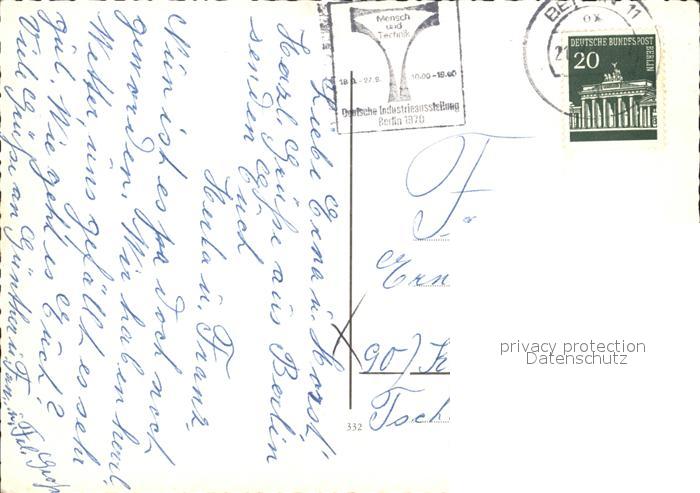 Liebe Erna u. Horst!
Herzl. Grüße aus Berlin
senden Euch
Herta u. Franz
Nun ist es ja doch noch
geworden. Wir haben herrl.
Wetter, uns gefällt es sehr
gut. Wie geht es Euch?
Viele Grüße an Günther
Mensch
und
Technik
18.9.-27.9. 10.00-19.00
Deutsche Industrieausstellung
Berlin 1970
BERLIN 11
DEUTSCHE BUNDESPOST
BERLIN
20
F
Ern
90
Tsch
332
privacy protection
Datenschutz